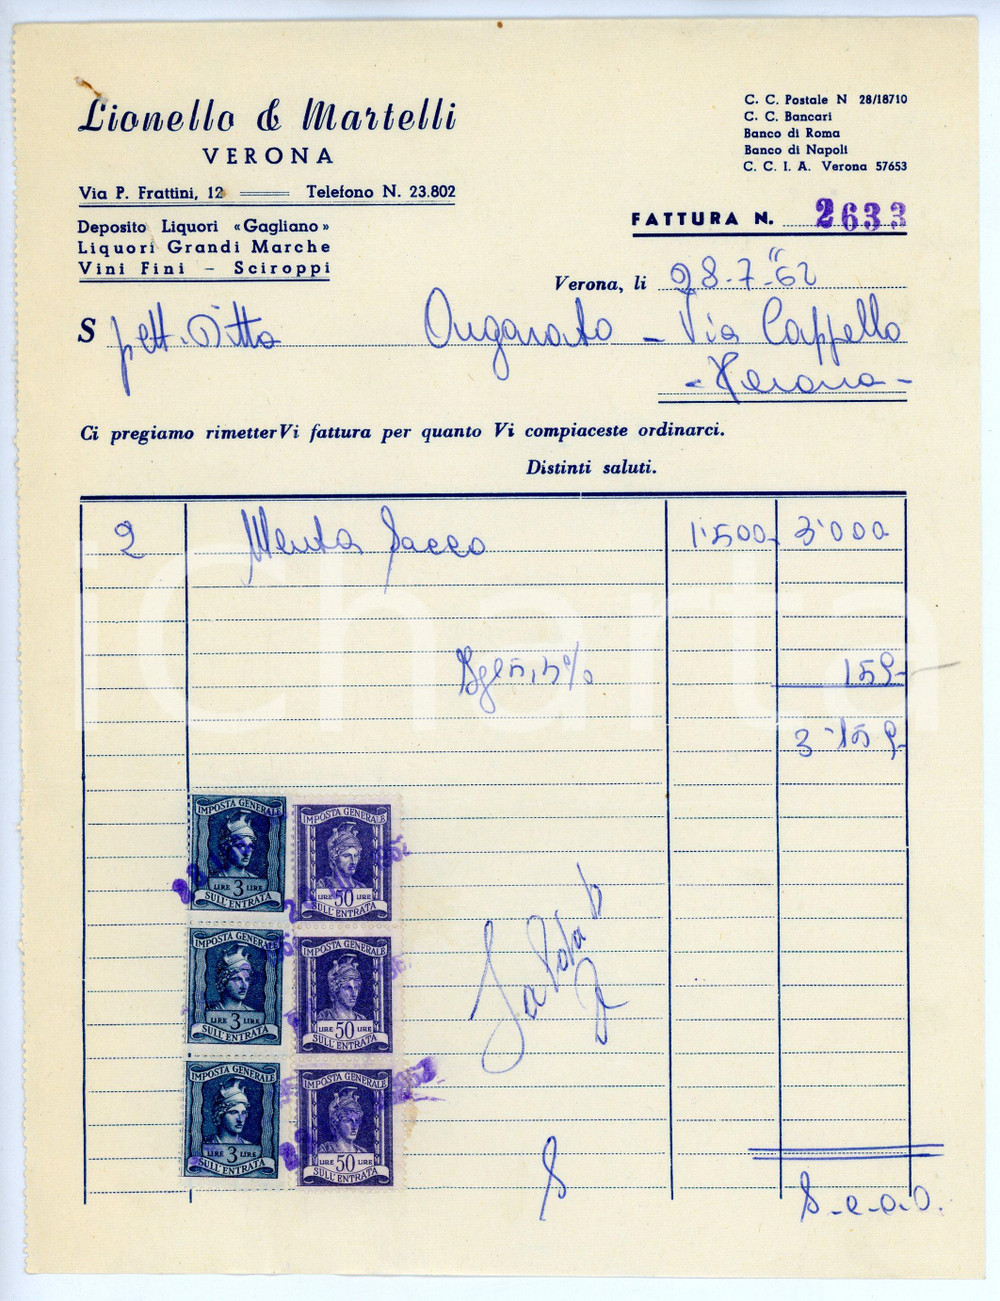 Lionello & Martelli
VERONA
Via P. Frattini, 12 Telefono N. 23.802
Deposito Liquori «Gagliano»
Liquori Grandi Marche
Vini Fini - Sciroppi
C. C. Postale N 28/18710
C. C. Bancari
Banco di Roma
Banco di Napoli
C. C. I. A. Verona 57653
FATTURA N. 2633
Verona, li 28-7-62
Spett. Ditta Ongarato - Via Cappello
- Verona -
Ci pregiamo rimetterVi fattura per quanto Vi compiaceste ordinarci.
Distinti saluti.
2 Menta Sacco 1'500- 3'000
5,3% 159-
3'159-
IMPOSTA GENERALE
LIRE 3 LIRE
SULL'ENTRATA
IMPOSTA GENERALE
LIRE 50 LIRE
SULL'ENTRATA
IMPOSTA GENERALE
LIRE 3 LIRE
SULL'ENTRATA
IMPOSTA GENERALE
LIRE 50 LIRE
SULL'ENTRATA
IMPOSTA GENERALE
LIRE 3 LIRE
SULL'ENTRATA
IMPOSTA GENERALE
LIRE 50 LIRE
SULL'ENTRATA
S.e.o.o.
iCharta